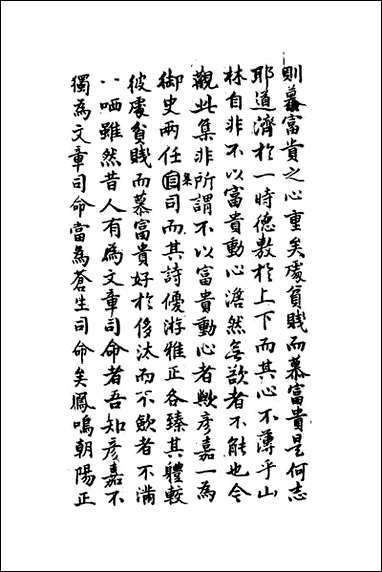 則慕富貴之心重矣處貧賤而慕富貴是何志
耶道濟於一時德敷於上下而其心不薄乎山
林自非不以富貴動心澹然無欲者不能也今
觀此集非所謂不以富貴動心者歟彦嘉一為
御史兩任司而其詩優游雅正各臻其體較
彼處貧賤而慕富貴好於侈汰而不歛者不滿
八哂雖然昔人有為文章司命者吾知彦嘉不
獨為文章司命當為蒼生司命矣鳳鳴朝陽正